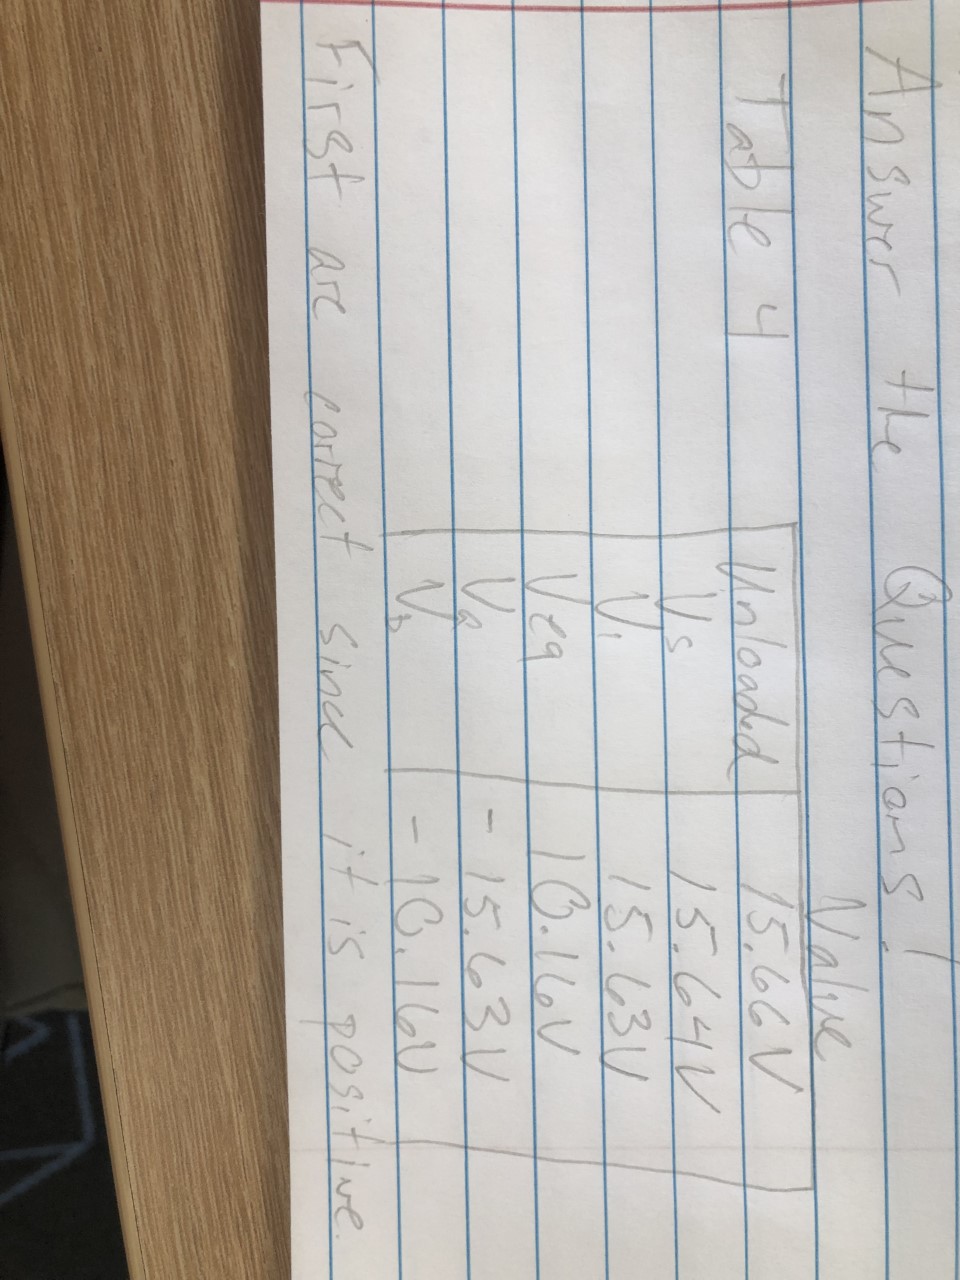 Answer the Questions!
Value
Table 4 Unloaded 15.66V
Vs 15.64V
V1 15.63V
Veq 10.16V
Va -15.63V
Vb -10.16V
First are correct since it is positive.